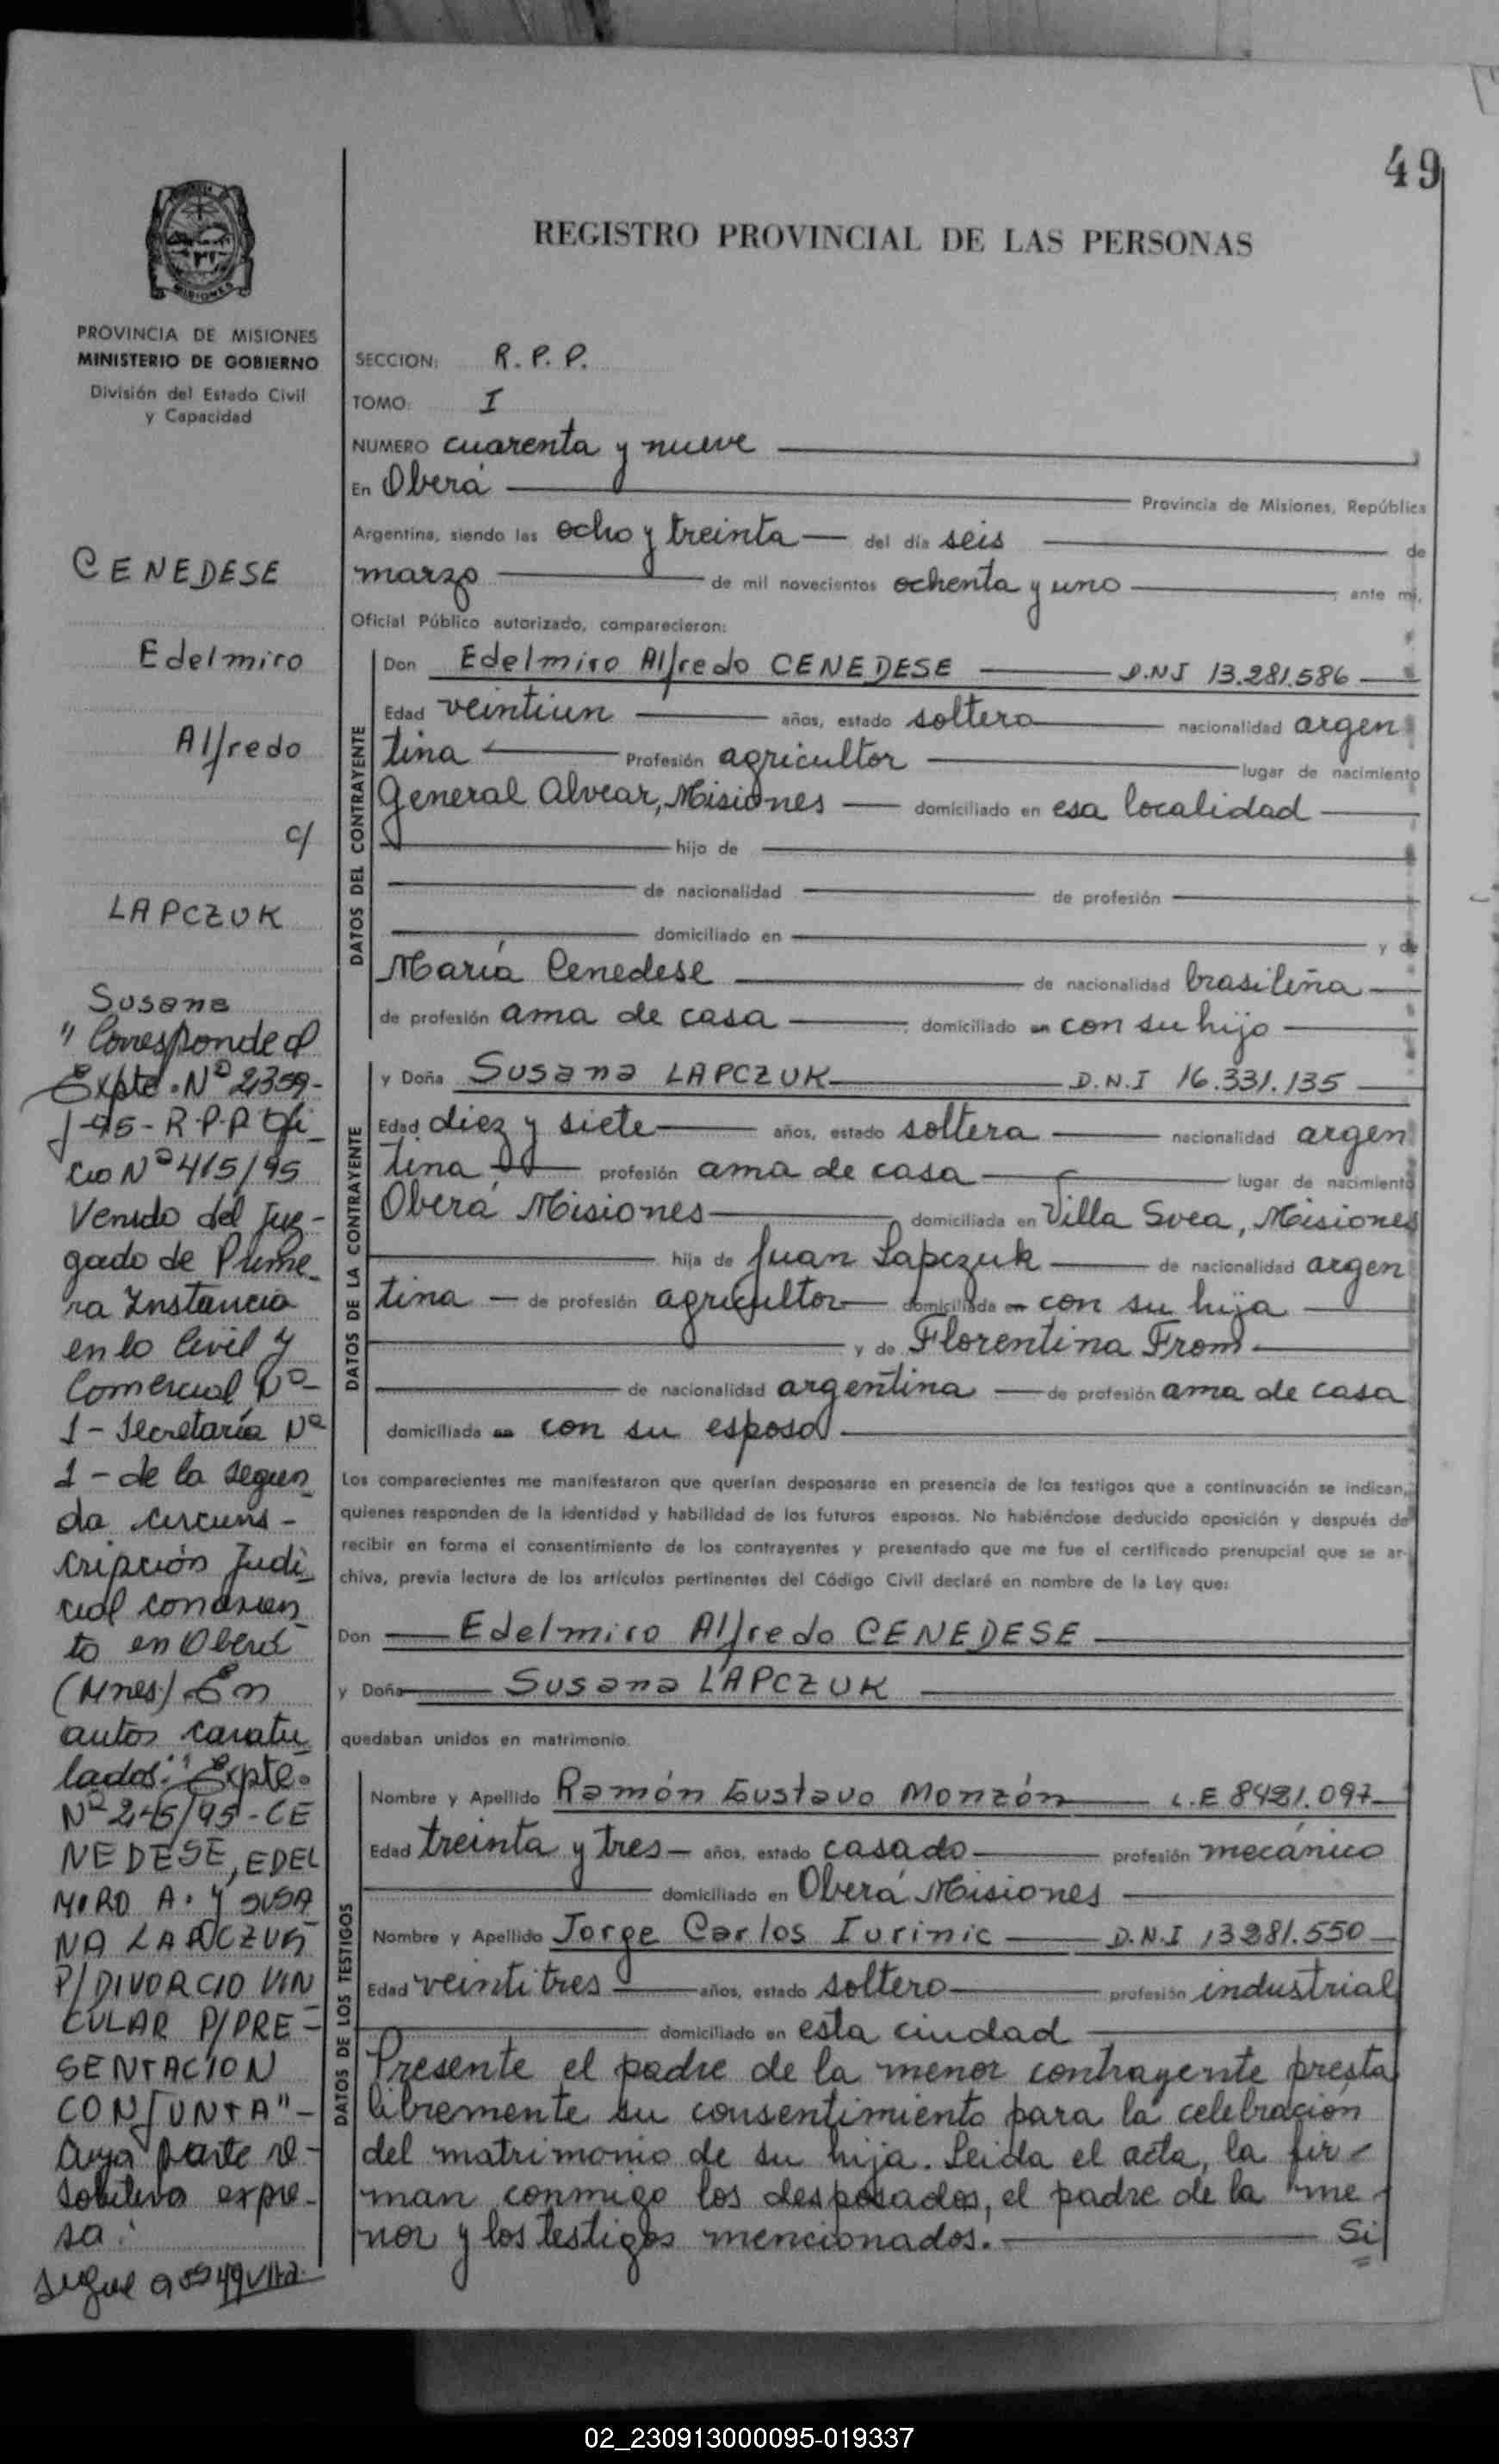 49
REGISTRO PROVINCIAL DE LAS PERSONAS
MISIONES
PROVINCIA DE MISIONES
MINISTERIO DE GOBIERNO
División del Estado Civil
y Capacidad
CENEDESE
Edelmiro
Alfredo
c/
LAPCZUK
Susana
"Corresponde al
Expte. Nº
1-95-R.P.P Ofi
cio Nº 415/95
Venido del Juz-
gado de Prime-
ra Instancia
en lo Civil y
Comercial Nº-
1-Secretaría Nº
1-de la segun
da circuns-
cripción Judi
cial con asien
to en Oberá
(Mnes) En
autos caratu
lados: "Expte.
Nº 245/95-CE
NEDESE, EDEL
MIRO A. Y SUSA
NA LAPCZUK
P/DIVORCIO VIN
CULAR P/PRE-
SENTACION
CONJUNTA"-
cuya parte re-
solutiva expre-
sa:
Sigue a Fº 49 Vlta.
SECCION: R.P.P.
TOMO: I
NUMERO cuarenta y nueve
En Oberá Provincia de Misiones, República
Argentina, siendo las ocho y treinta del día seis de
marzo de mil novecientos ochenta y uno ante mí,
Oficial Público autorizado, comparecieron:
DATOS DEL CONTRAYENTE
Don Edelmiro Alfredo CENEDESE D.N.I 13.281.586
Edad veintiun años, estado soltero nacionalidad argen
tina Profesión agricultor lugar de nacimiento
General Alvear, Misiones domiciliado en esa localidad
hijo de
de nacionalidad de profesión
domiciliado en y de
María Cenedese de nacionalidad brasileña
de profesión ama de casa domiciliado en con su hijo
DATOS DE LA CONTRAYENTE
y Doña Susana LAPCZUK D.N.I 16.331.135
Edad diez y siete años, estado soltera nacionalidad argen
tina profesión ama de casa lugar de nacimiento
Oberá Misiones domiciliada en Villa Svea, Misiones
hija de Juan Lapczuk de nacionalidad argen
tina de profesión agricultor domiciliado en con su hija
y de Florentina From
de nacionalidad argentina de profesión ama de casa
domiciliada en con su esposo
Los comparecientes me manifestaron que querían desposarse en presencia de los testigos que a continuación se indican,
quienes responden de la identidad y habilidad de los futuros esposos. No habiéndose deducido oposición y después de
recibir en forma el consentimiento de los contrayentes y presentado que me fue el certificado prenupcial que se ar-
chiva, previa lectura de los artículos pertinentes del Código Civil declaré en nombre de la Ley que:
Don Edelmiro Alfredo CENEDESE
y Doña Susana LAPCZUK
quedaban unidos en matrimonio.
DATOS DE LOS TESTIGOS
Nombre y Apellido Ramón Gustavo Monzón L.E 8421.097
Edad treinta y tres años, estado casado profesión mecánico
domiciliado en Oberá Misiones
Nombre y Apellido Jorge Carlos Iurinic D.N.I 13281.550
Edad veintitres años, estado soltero profesión industrial
domiciliado en esta ciudad
Presente el padre de la menor contrayente presta
libremente su consentimiento para la celebración
del matrimonio de su hija. Leida el acta, la fir-
man conmigo los desposados, el padre de la me-
nor y los testigos mencionados. Si
02_230913000095-019337